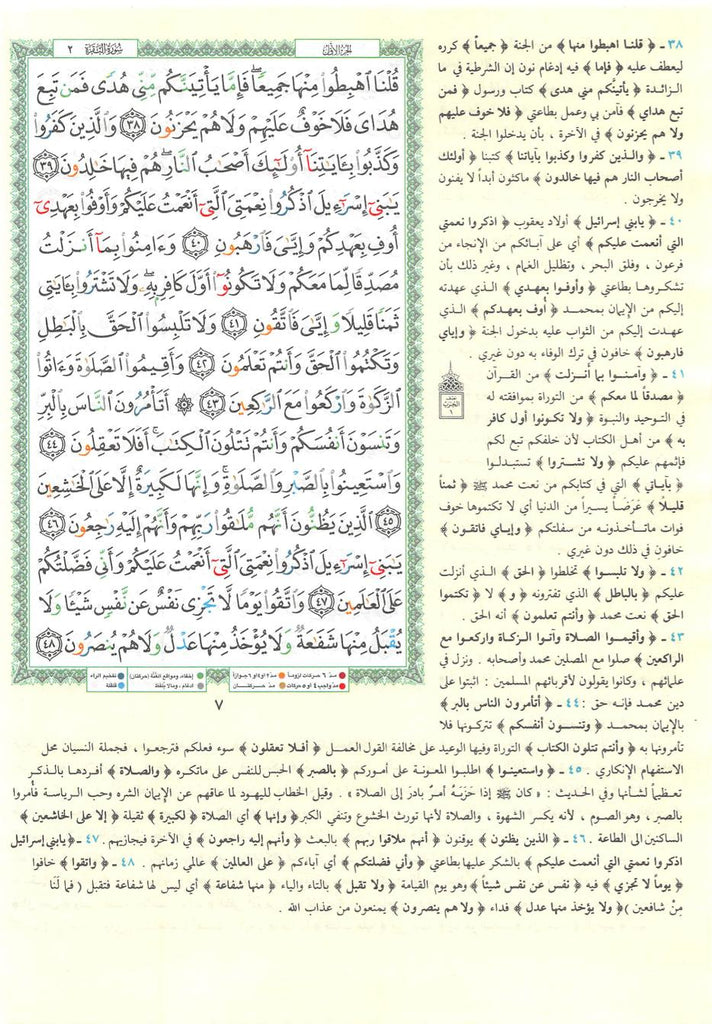 سورة البقرة ٢
الجزء الأول
قُلْنَا ٱهْبِطُوا۟ مِنْهَا جَمِيعًۭا ۖ فَإِمَّا يَأْتِيَنَّكُم مِّنِّى هُدًۭى فَمَن تَبِعَ
هُدَاىَ فَلَا خَوْفٌ عَلَيْهِمْ وَلَا هُمْ يَحْزَنُونَ ٣٨ وَٱلَّذِينَ كَفَرُوا۟
وَكَذَّبُوا۟ بِـَٔايَـٰتِنَآ أُو۟لَـٰٓئِكَ أَصْحَـٰبُ ٱلنَّارِ ۖ هُمْ فِيهَا خَـٰلِدُونَ ٣٩
يَـٰبَنِىٓ إِسْرَٰٓءِيلَ ٱذْكُرُوا۟ نِعْمَتِىَ ٱلَّتِىٓ أَنْعَمْتُ عَلَيْكُمْ وَأَوْفُوا۟ بِعَهْدِىٓ
أُوفِ بِعَهْدِكُمْ وَإِيَّـٰىَ فَٱرْهَبُونِ ٤٠ وَءَامِنُوا۟ بِمَآ أَنزَلْتُ
مُصَدِّقًۭا لِّمَا مَعَكُمْ وَلَا تَكُونُوٓا۟ أَوَّلَ كَافِرٍۭ بِهِۦ ۖ وَلَا تَشْتَرُوا۟ بِـَٔايَـٰتِى
ثَمَنًۭا قَلِيلًۭا وَإِيَّـٰىَ فَٱتَّقُونِ ٤١ وَلَا تَلْبِسُوا۟ ٱلْحَقَّ بِٱلْبَـٰطِلِ
وَتَكْتُمُوا۟ ٱلْحَقَّ وَأَنتُمْ تَعْلَمُونَ ٤٢ وَأَقِيمُوا۟ ٱلصَّلَوٰةَ وَءَاتُوا۟
ٱلزَّكَوٰةَ وَٱرْكَعُوا۟ مَعَ ٱلرَّٰكِعِينَ ٤٣ ۞ أَتَأْمُرُونَ ٱلنَّاسَ بِٱلْبِرِّ
وَتَنسَوْنَ أَنفُسَكُمْ وَأَنتُمْ تَتْلُونَ ٱلْكِتَـٰبَ ۚ أَفَلَا تَعْقِلُونَ ٤٤
وَٱسْتَعِينُوا۟ بِٱلصَّبْرِ وَٱلصَّلَوٰةِ ۚ وَإِنَّهَا لَكَبِيرَةٌ إِلَّا عَلَى ٱلْخَـٰشِعِينَ
٤٥ ٱلَّذِينَ يَظُنُّونَ أَنَّهُم مُّلَـٰقُوا۟ رَبِّهِمْ وَأَنَّهُمْ إِلَيْهِ رَٰجِعُونَ ٤٦
يَـٰبَنِىٓ إِسْرَٰٓءِيلَ ٱذْكُرُوا۟ نِعْمَتِىَ ٱلَّتِىٓ أَنْعَمْتُ عَلَيْكُمْ وَأَنِّى فَضَّلْتُكُمْ
عَلَى ٱلْعَـٰلَمِينَ ٤٧ وَٱتَّقُوا۟ يَوْمًۭا لَّا تَجْزِى نَفْسٌ عَن نَّفْسٍۢ شَيْـًۭٔا وَلَا
يُقْبَلُ مِنْهَا شَفَـٰعَةٌۭ وَلَا يُؤْخَذُ مِنْهَا عَدْلٌۭ وَلَا هُمْ يُنصَرُونَ ٤٨
مدّ ٦ حركات لزوماً مدّ ٢ أو ٤ أو ٦ جوازاً إخفاء، ومواقع الغنّة (حركتان) تفخيم الراء
مدّ واجب ٤ أو ٥ حركات مدّ حركتان إدغام، وما لا يُلفظ قلقلة
٧
٣٨ - ﴿ قلنا اهبطوا منها ﴾ من الجنة ﴿ جميعاً ﴾ كرره
ليعطف عليه ﴿ فإما ﴾ فيه إدغام نون إن الشرطية في ما
الزائدة ﴿ يأتينَّكم مني هدى ﴾ كتاب ورسول ﴿ فمن
تبع هداي ﴾ فآمن بي وعمل بطاعتي ﴿ فلا خوف عليهم
ولا هم يحزنون ﴾ في الآخرة ، بأن يدخلوا الجنة .
٣٩ - ﴿ والذين كفروا وكذبوا بآياتنا ﴾ كتبنا ﴿ أولئك
أصحاب النار هم فيها خالدون ﴾ ماكثون أبداً لا يفنون
ولا يخرجون .
٤٠ - ﴿ يابني إسرائيل ﴾ أولاد يعقوب ﴿ اذكروا نعمتي
التي أنعمت عليكم ﴾ أي على آبائكم من الإنجاء من
فرعون ، وفلق البحر ، وتظليل الغمام ، وغير ذلك بأن
تشكروها بطاعتي ﴿ وأوفوا بعهدي ﴾ الذي عهدته
إليكم من الإيمان بمحمد ﴿ أُوف بعهدكم ﴾ الذي
عهدت إليكم من الثواب عليه بدخول الجنة ﴿ وإياي
فارهبون ﴾ خافون في ترك الوفاء به دون غيري .
٤١ - ﴿ وآمنوا بما أنزلت ﴾ من القرآن
﴿ مصدقاً لما معكم ﴾ من التوراة بموافقته له
في التوحيد والنبوة ﴿ ولا تكونوا أول كافر
به ﴾ من أهل الكتاب لأن خلفكم تبع لكم
فإثمهم عليكم ﴿ ولا تشتروا ﴾ تستبدلوا
﴿ بآياتي ﴾ التي في كتابكم من نعت محمد ﷺ ﴿ ثمناً
قليلاً ﴾ عَرَضاً يسيراً من الدنيا أي لا تكتموها خوف
فوات ما تأخذونه من سفلتكم ﴿ وإياي فاتقون ﴾
خافون في ذلك دون غيري .
٤٢ - ﴿ ولا تلبسوا ﴾ تخلطوا ﴿ الحق ﴾ الذي أنزلت
عليكم ﴿ بالباطل ﴾ الذي تفترونه ﴿ و ﴾ لا ﴿ تكتموا
الحق ﴾ نعت محمد ﴿ وأنتم تعلمون ﴾ أنه الحق .
٤٣ - ﴿ وأقيموا الصلاة وآتوا الزكاة واركعوا مع
الراكعين ﴾ صلوا مع المصلين محمد وأصحابه . ونزل في
علمائهم ، وكانوا يقولون لأقربائهم المسلمين : اثبتوا على
دين محمد فإنه حق : ٤٤ - ﴿ أتأمرون الناس بالبر ﴾
بالإيمان بمحمد ﴿ وتنسون أنفسكم ﴾ تتركونها فلا
تأمرونها به ﴿ وأنتم تتلون الكتاب ﴾ التوراة وفيها الوعيد على مخالفة القول العمل ﴿ أفلا تعقلون ﴾ سوء فعلكم فترجعوا ، فجملة النسيان محل
الاستفهام الإنكاري . ٤٥ - ﴿ واستعينوا ﴾ اطلبوا المعونة على أموركم ﴿ بالصبر ﴾ الحبس للنفس على ماتكره ﴿ والصلاة ﴾ أفردها بالذكر
تعظيماً لشأنها وفي الحديث : « كان ﷺ إذا حَزَبَهُ أمرٌ بادرَ إلى الصلاة » . وقيل الخطاب لليهود لما عاقهم عن الإيمان الشره وحب الرياسة فأمروا
بالصبر ، وهو الصوم ، لأنه يكسر الشهوة ، والصلاة لأنها تورث الخشوع وتنفي الكبر ﴿ وإنها ﴾ أي الصلاة ﴿ لكبيرة ﴾ ثقيلة ﴿ إلا على الخاشعين ﴾
الساكنين الى الطاعة . ٤٦ - ﴿ الذين يظنون ﴾ يوقنون ﴿ أنهم ملاقوا ربهم ﴾ بالبعث ﴿ وأنهم إليه راجعون ﴾ في الآخرة فيجازيهم . ٤٧ - ﴿ يابني إسرائيل
اذكروا نعمتي التي أنعمت عليكم ﴾ بالشكر عليها بطاعتي ﴿ وأني فضلتكم ﴾ أي آباءكم ﴿ على العالمين ﴾ عالمي زمانهم . ٤٨ - ﴿ واتقوا ﴾ خافوا
﴿ يوماً لا تجزي ﴾ فيه ﴿ نفس عن نفس شيئاً ﴾ وهو يوم القيامة ﴿ ولا تقبل ﴾ بالتاء والياء ﴿ منها شفاعة ﴾ أي ليس لها شفاعة فتقبل ( فما لَنَا
مِنْ شافعين ) ﴿ ولا يؤخذ منها عدل ﴾ فداء ﴿ ولا هم ينصرون ﴾ يمنعون من عذاب الله .